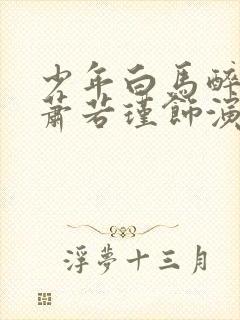 少年白馬醉
蕭若瑾飾演
浮夢十三月